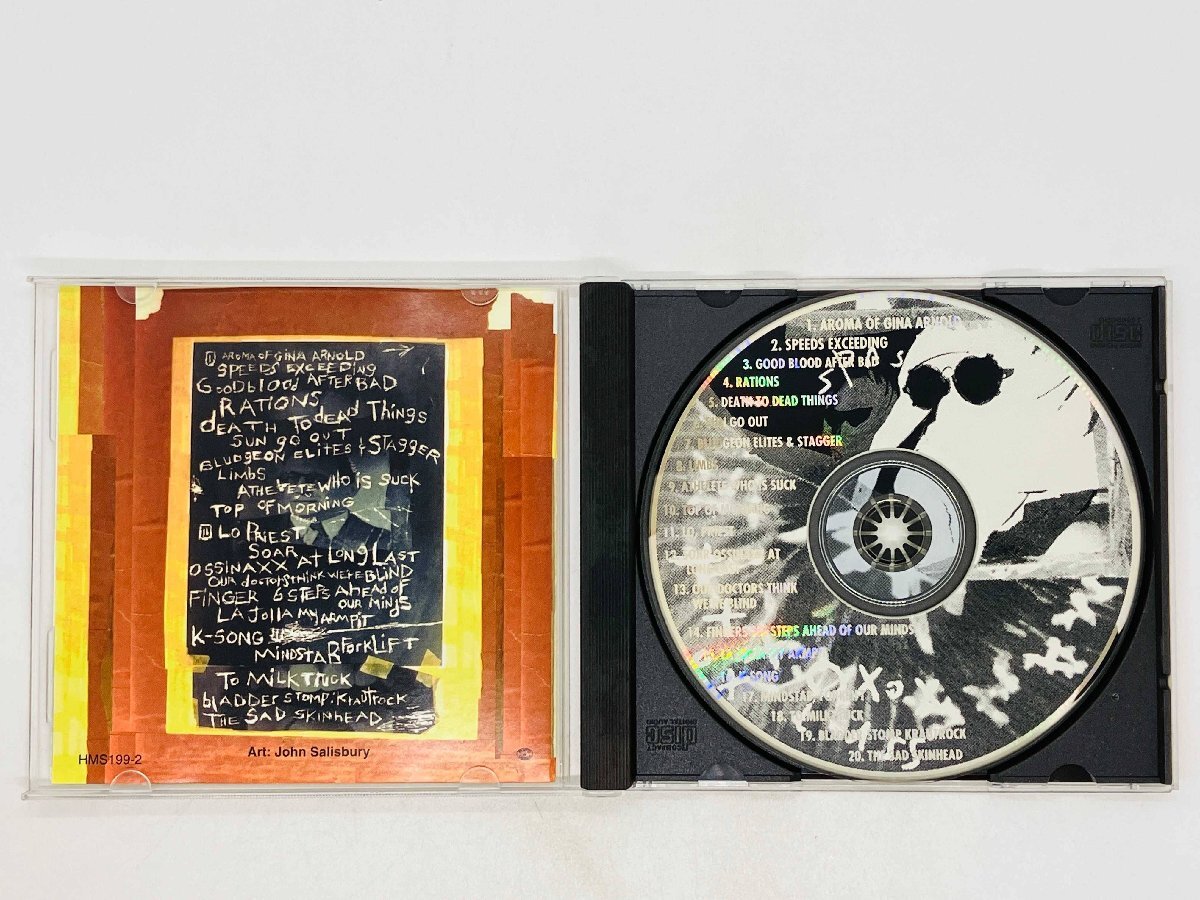 AROMA OF GINA ARNOLD
SPEEDS EXCEEDING
GOOD BLOOD AFTER BAD
RATIONS
DEATH TO DEAD THINGS
SUN GO OUT
BLUDGEON ELITES & STAGGER
LIMBS
ATHELETE WHO IS SUCK
TOP OF MORNING
LO PRIEST
SOAR AT LONG LAST
OSSINAXX
OUR DOCTORS THINK WE'RE BLIND
FINGER 6 STEPS AHEAD OF
OUR MINDS
LA JOLLA MY ARMPIT
K-SONG
MINDSTAB FORKLIFT
TO MILKTRUCK
bLADDER STOMP: KRAUTROCK
THE SAD SKINHEAD
Art: John Salisbury
HMS199-2
1. AROMA OF GINA ARNOLD
2. SPEEDS EXCEEDING
3. GOOD BLOOD AFTER BAD
4. RATIONS
5. DEATH TO DEAD THINGS
GO OUT
7. BLUDGEON ELITES & STAGGER
8. LIMBS
9. ATHELETE WHO IS SUCK
10. TOP OF
11. LO
12. AT
13. OUR DOCTORS THINK
WE'RE BLIND
14. FINGERS STEPS AHEAD OF OUR MINDS
SONG
17. MINDSTAB
18. TO MILKTRUCK
19. BLADDER STOMP KRAUTROCK
20. THE SAD SKINHEAD
COMPACT
disc
DIGITAL AUDIO
disc